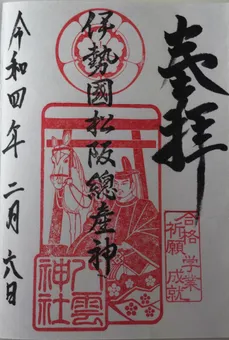 奉拝
合格祈願
学業成就
伊勢國松阪總産神
八雲神社
令和四年二月六日